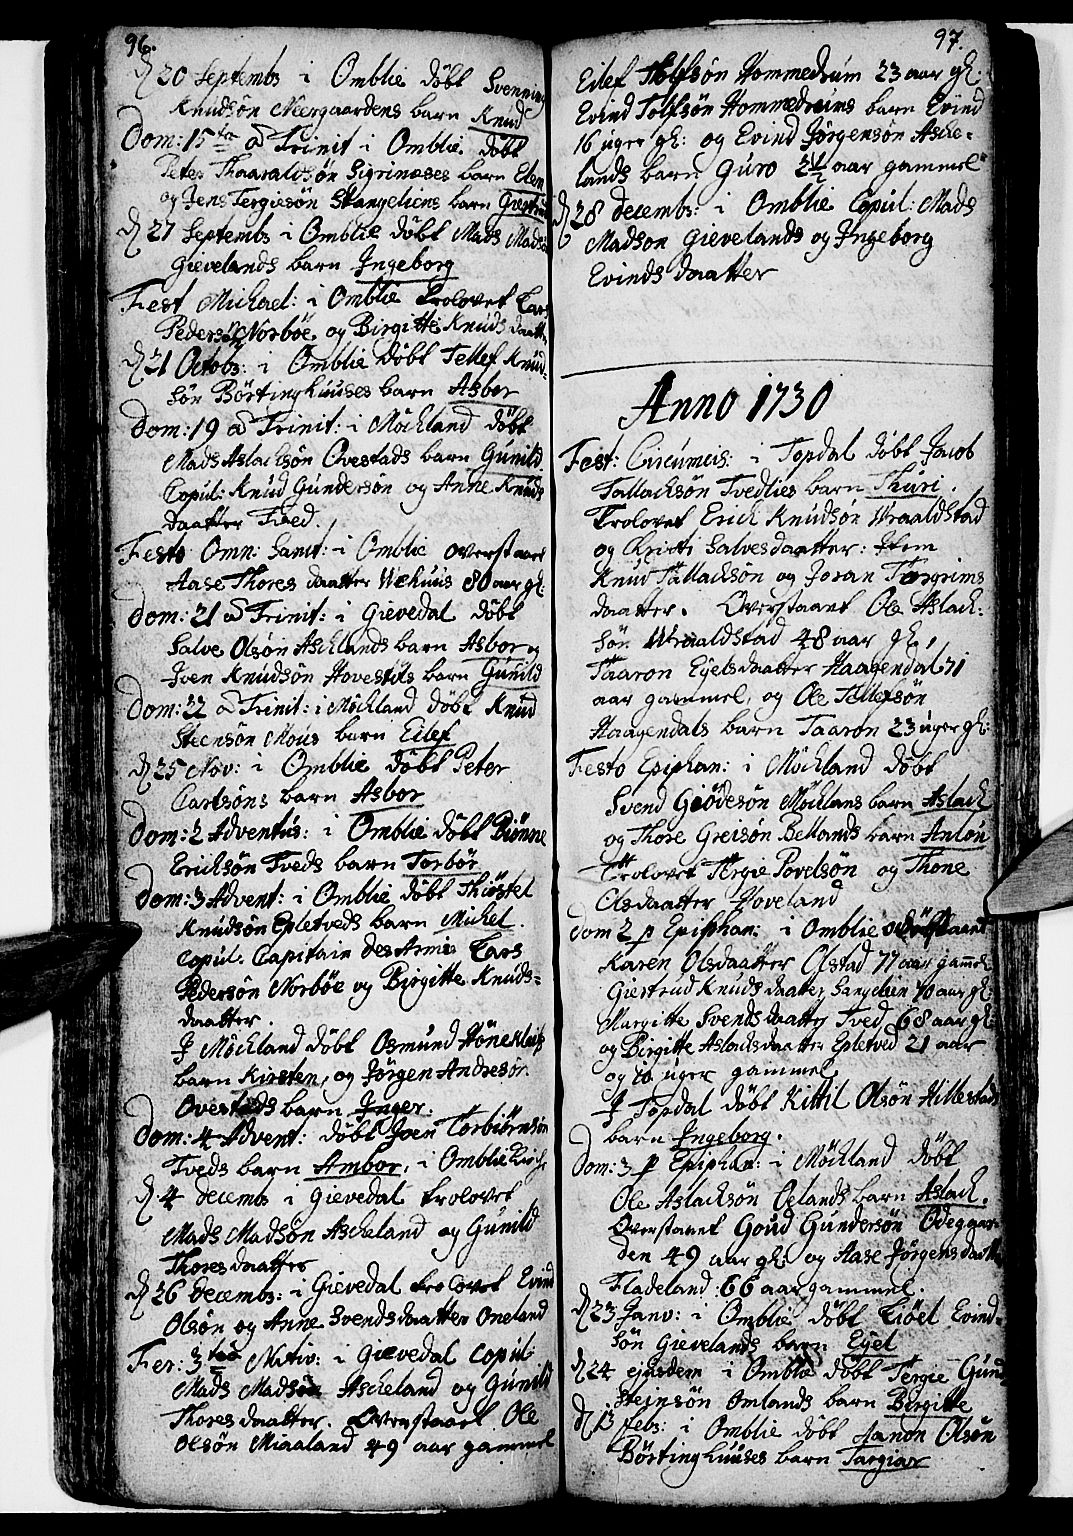 96.
d 20 Septembs i Omblie döbt Svenning
Knudsön Neergaardens barn Knud
Dom: 15ta a Trinit i Omblie döbt
Peter Thaaraldsön Sigrinæses barn Elen
og Jens Tergiesön Stangeliens barn Giertrud
d 27 Septembs i Omblie döbt Mads Mads
Gievelands barn Ingeborg
Fest Michael: i Omblie trolovet Lars
Pedersön Norböe og Birgitte Knuds daatter
d 21 Octobs: i Omblie döbt Tellef Knud-
sön Börtinghuuses barn Asbor
Dom: 19 a Trinit: i Möckland döbt
Mads Aslachsön Ovestads barn Gunild
Copul: Knud Gundersön og Anne Knuds
daatter Tved.
Festo Omn: Sanct: i Omblie overstaaet
Aase Thores daatter Uehuus 80 aar gl:
Dom: 21 a Trinit: i Gievedal döbt
Salve Olsön Aschlands barn Asbor og
Iven Knudsön Hovestöls barn Gunild
Dom: 22 a Trinit: i Möckland döbt Knud
Steensön Mous barn Eilef
d 25 Nov: i Omblie döbt Peter
Carlsöns barn Asbor
Dom: 2 Adventus: i Omblie döbt Biönne
Ericksön Tveds barn Torbör
Dom: 3 Advent: i Omblie döbt Thiöstel
Knudsön Epletveds barn Michel.
Copul. Capitain des Armes Lars
Pedersön Norböe og Birgitte Knuds-
daatter.
I Möckland döbt Osmund Höneklöfs
barn Kirsten, og Jörgen Andresön
Ovestads barn Inger.
Dom: 4 Advent: döbt Joen Torbiörnsön
Tveds barn Ambor, i Omblie Kirche
d 4 decembs i Gievedal trolovet
Mads Madsön Ascheland og Gunild
Thores daatter
d 26 decembs: i Gievedal trolovet Evind
Olsön og Anne Svends daatter Oneland
Fer: 3tia Nativ: i Gievedal copul
Mads Madsön Ascheland og Gunild
Thores daatter. Overstaaet Ole
Olsön Miaaland 49 aar gammel
97.
Eilef Tolfsön Hommedrum 23 aar gl:
Evind Tolfsön Hommedrums barn Evind
16 uger gl: og Evind Jörgensön Asche-
lands barn Guro 2½ aar gammel
d 28 decembs: i Omblie Copul: Mads
Madson Gievelands og Ingeborg
Evinds daatter
Anno 1730
Fest: Circumcis: i Topdal döbt Jacob
Tallachsön Tvedlies barn Thuri.
Trolovet Erich Knudson Uraaldstad
og Christi Salvesdaatter: Item
Knud Tallachsön og Joran Torgrims
daatter. Overstaaet Ole Aslach-
sön Uraaldstad 48 aar gl,
Taaron Eyelsdaatter Haagendal 71
aar gammel, og Ole Tellefsön
Haagendals barn Taaron 23 uger gl:
Festo Epiphan: i Möckland döbt
Svend Giödesön Möcklans barn Aslach
og Thore Greisön Bellands barn Anlou
Trolovet Tergie Povelsön og Thone
Olsdaatter Hoveland
Dom 2 p Epiphan: i Omblie
Karen Olsdaatter Olstad 77 aar gammel
Giertrud Knuds daatter Sangelien 70 aar gl:
Margitte Svends daatter Tved 68 aar gl:
og Birgitte Aslachsdaatter Epletved 21 aar
og 10 uger gammel
I Topdal döbt Kittil Olsön Hillestads
barn Ingeborg.
Dom: 3 p Epiphan: i Möckland döbt
Ole Aslachsön Oelands barn Aslach.
Overstaaet Goud Gundersön Ödegaar-
den 49 aar gl og Aase Jörgens daatter
Fladeland: 66 aar gammel.
d 23 Janv: i Omblie döbt Liöel Evind-
sön Gievelands barn Eyel
d 24 ejusdem i Omblie döbt Tergie Gund
steinsön Omlands barn Birgitte
d 13 febs: i Omblie döbt Aanon Olsön
Börtinghuuses barn Targiær